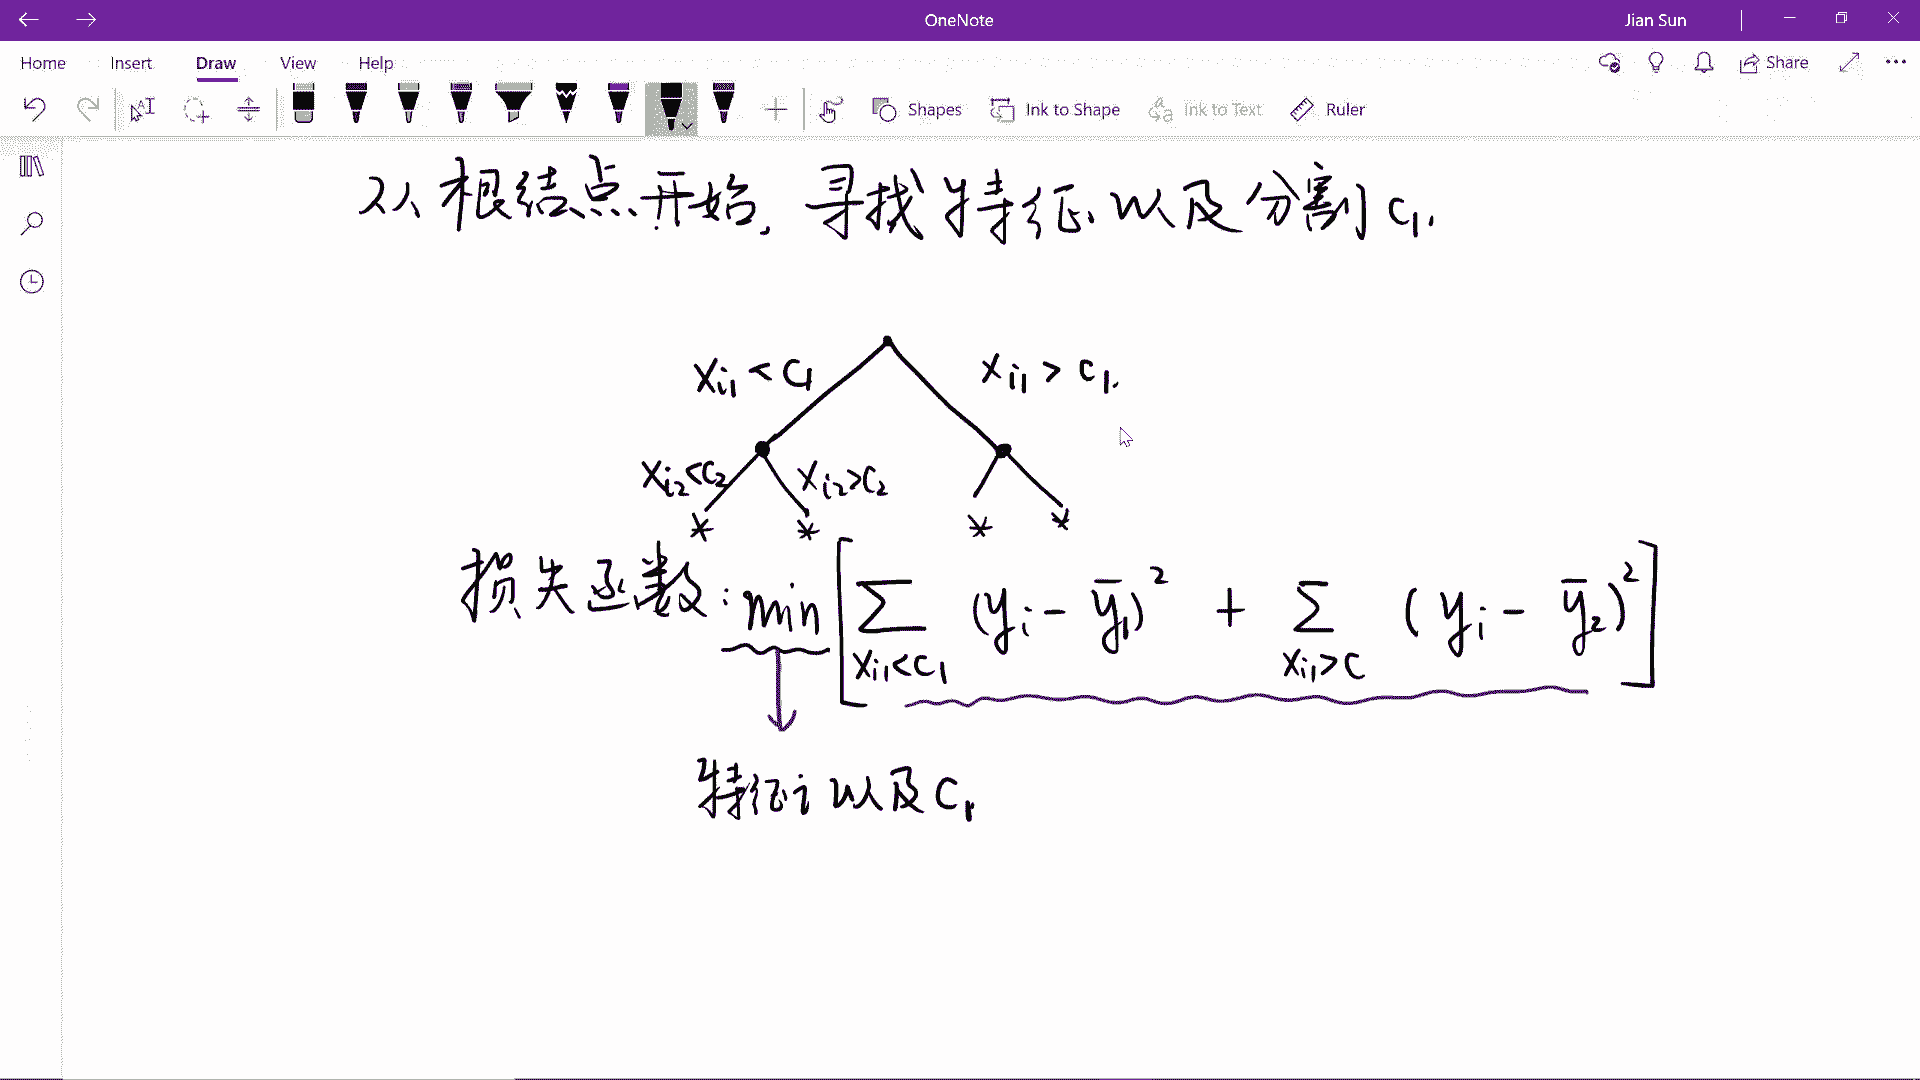 OneNote
Jian Sun
Home Insert Draw View Help
Share
Shapes Ink to Shape Ink to Text Ruler
从根结点开始, 寻找特征以及分割 c₁.
xᵢ₁ < c₁ xᵢ₁ > c₁.
xᵢ₂<c₂ xᵢ₂>c₂
* * * *
损失函数: min [ ∑ (yᵢ - ȳ₁)² + ∑ (yᵢ - ȳ₂)² ]
xᵢ₁<c₁ xᵢ₁>c
特征i 以及 c₁